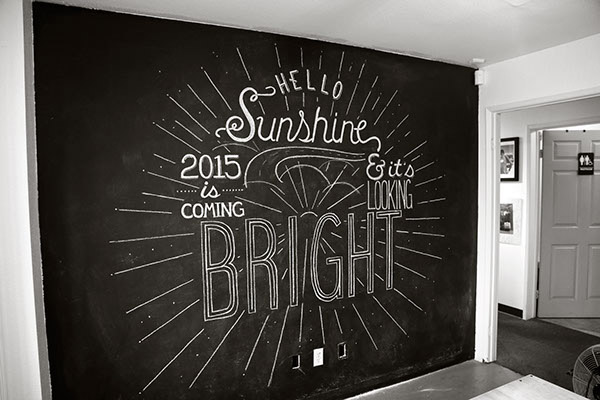 HELLO
Sunshine
2015 & it's
is LOOKING
COMING
BRIGHT